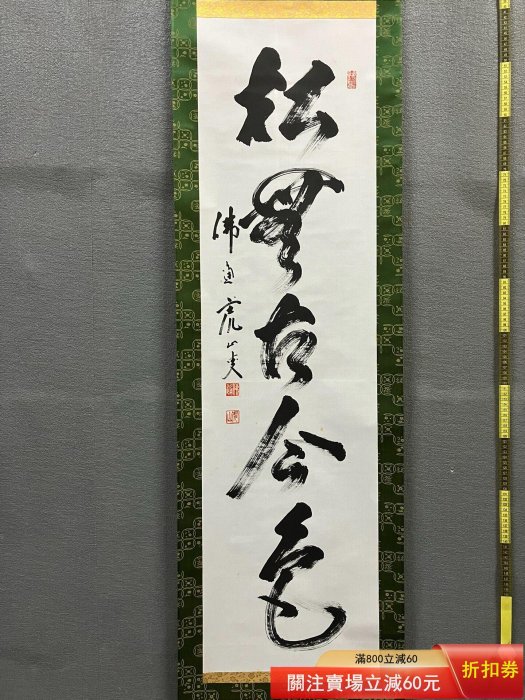 松無古今色
佛通 虎山叟
滿800立減60
關注賣場立減60元
折扣券